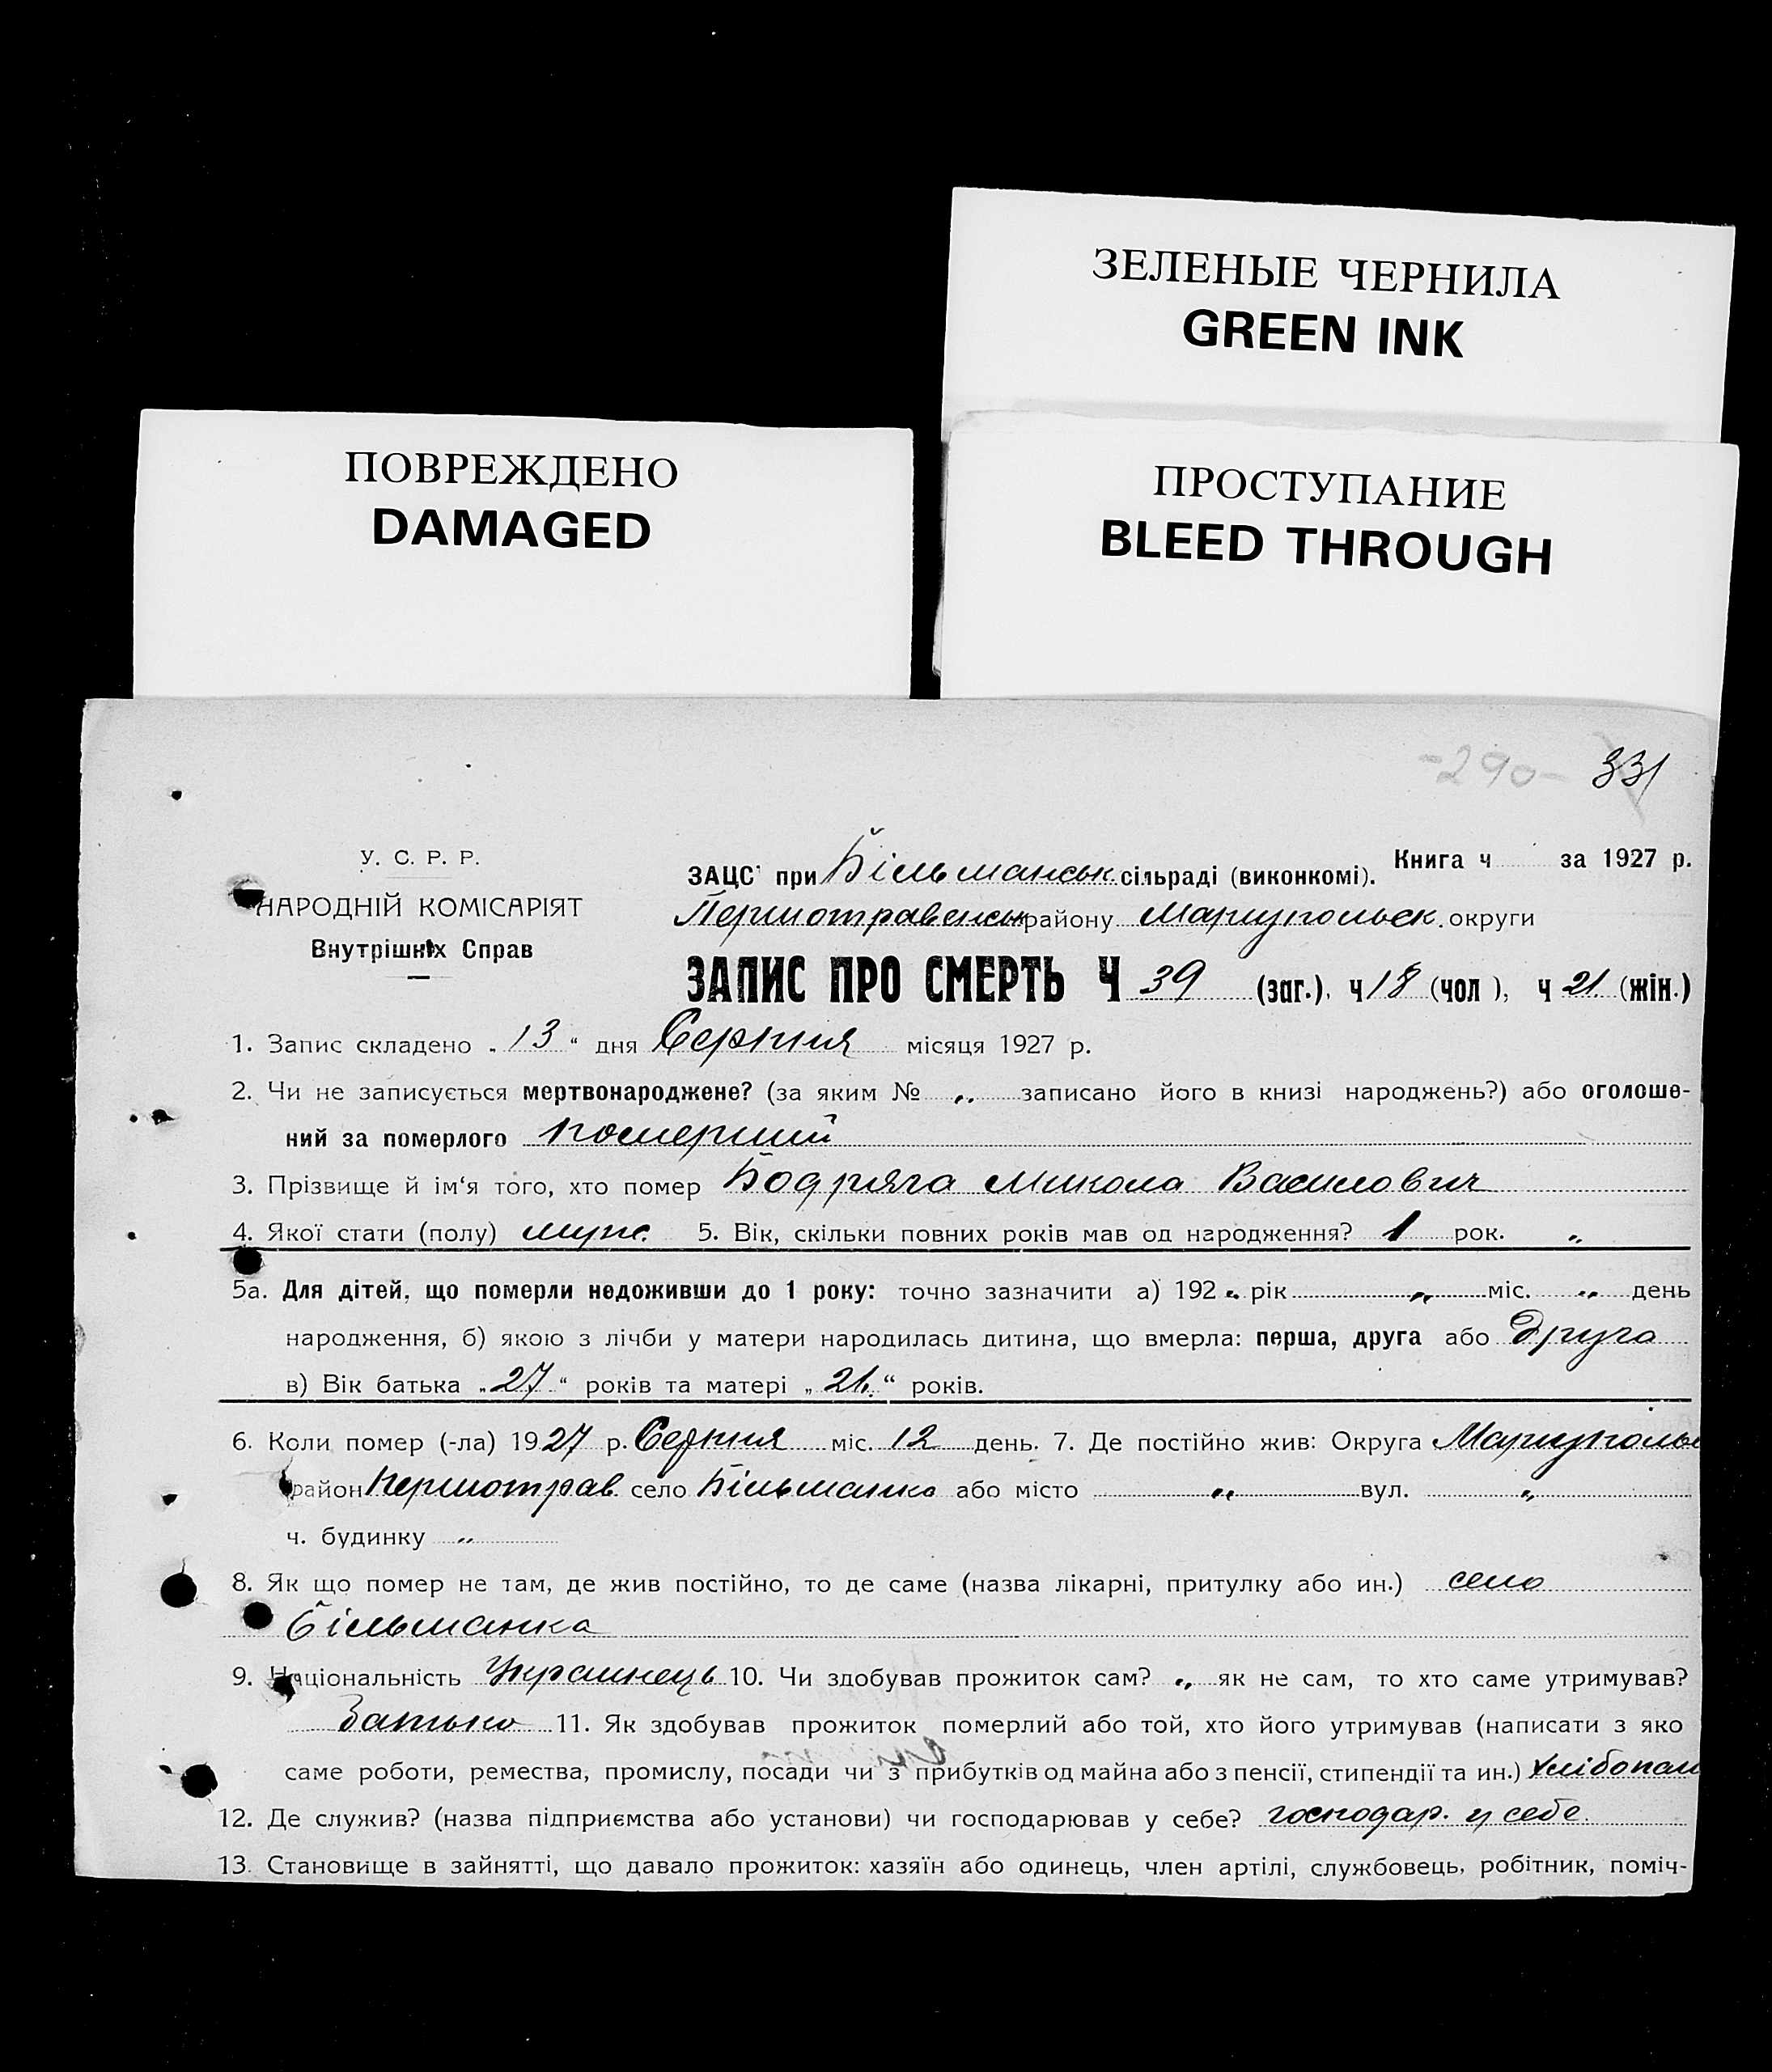 ЗЕЛЕНЫЕ ЧЕРНИЛА
GREEN INK
ПОВРЕЖДЕНО
DAMAGED
ПРОСТУПАНИЕ
BLEED THROUGH
-290- 331
У. С. Р. Р.
НАРОДНІЙ КОМІСАРІЯТ
Внутрішніх Справ
Книга ч за 1927 р.
ЗАЦС при Більманськ. сільраді (виконкомі).
Першотравенськ району Маріупольськ. округи
ЗАПИС ПРО СМЕРТЬ Ч 39 (заг.), ч 18 (чол ), ч 21. (жін.)
1. Запис складено „ 13 “ дня Серпня місяця 1927 р.
2. Чи не записується мертвонароджене? (за яким № „ записано його в книзі народжень?) або оголоше-
ний за померлого померший
3. Прізвище й ім‘я того, хто помер Бодряга Микола Василович
4. Якої стати (полу) муж. 5. Вік, скільки повних років мав од народження? 1 рок. „
5а. Для дітей, що померли недоживши до 1 року: точно зазначити а) 192 „ рік „ міс. „ день
народження, б) якою з лічби у матери народилась дитина, що вмерла: перша, друга або Друга
в) Вік батька „ 27 “ років та матері „ 21. “ років.
6. Коли помер (-ла) 1927 р. Серпня міс. 12 день. 7. Де постійно жив: Округа Маріуполь
район Першотрав. село Більманка або місто „ вул. „
ч. будинку „
8. Як що помер не там, де жив постійно, то де саме (назва лікарні, притулку або ин.) село
Більманка
9. Національність Українець 10. Чи здобував прожиток сам? „ як не сам, то хто саме утримував?
Батько 11. Як здобував прожиток померлий або той, хто його утримував (написати з яко
саме роботи, ремества, промислу, посади чи з прибутків од майна або з пенсії, стипендії та ин.) Хлібопаш
12. Де служив? (назва підприємства або установи) чи господарював у себе? господар. у себе.
13. Становище в зайнятті, що давало прожиток: хазяїн або одинець, член артілі, службовець, робітник, поміч-